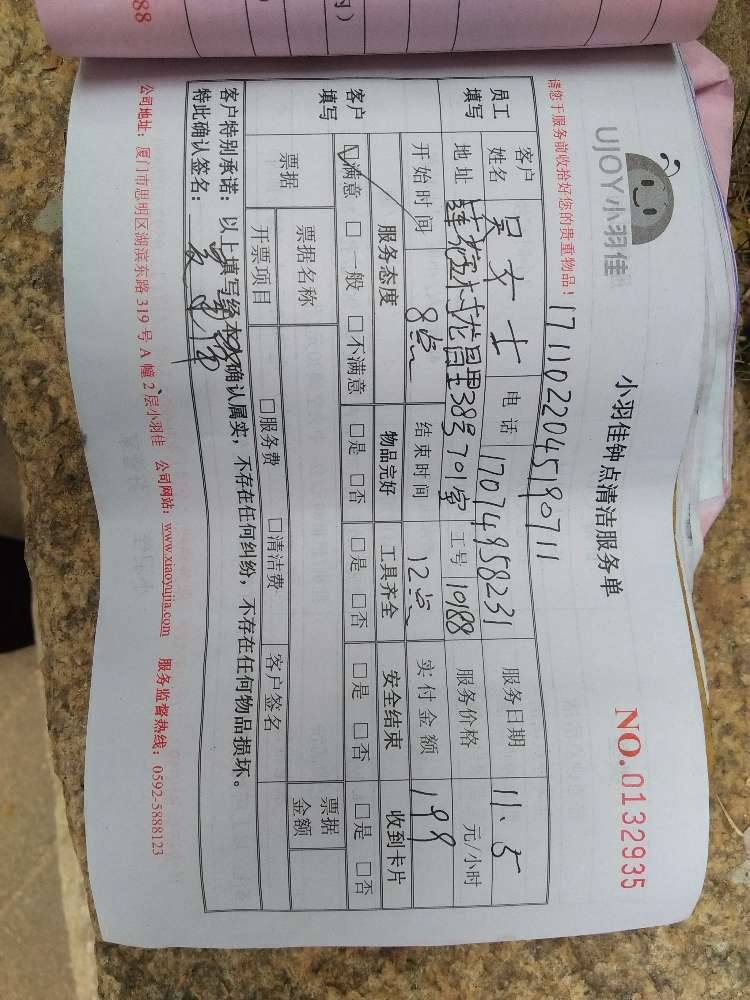 UJOY小羽佳
小羽佳钟点清洁服务单
NO.0132935
请您于服务前收拾好您的贵重物品!
1711022045190711
员工填写
客户姓名 吴女士 电话 17074958231 服务日期 11.5
地址 莲花村龙昌里38号701室 工号 10188 服务价格 元/小时
开始时间 8点 结束时间 12点 实付金额 199
客户填写
服务态度 物品完好 工具齐全 安全结束 收到卡片
☑满意 □一般 □不满意 □是 □否 □是 □否 □是 □否 □是 □否
票据 票据名称 票据金额
开票项目 □服务费 □清洁费 客户签名
客户特别承诺:以上填写经本人确认属实,不存在任何纠纷,不存在任何物品损坏。
特此确认签名:
公司地址:厦门市思明区湖滨东路319号A幢2层小羽佳 公司网站:www.xiaoyujia.com 服务监督热线:0592-5888123
88